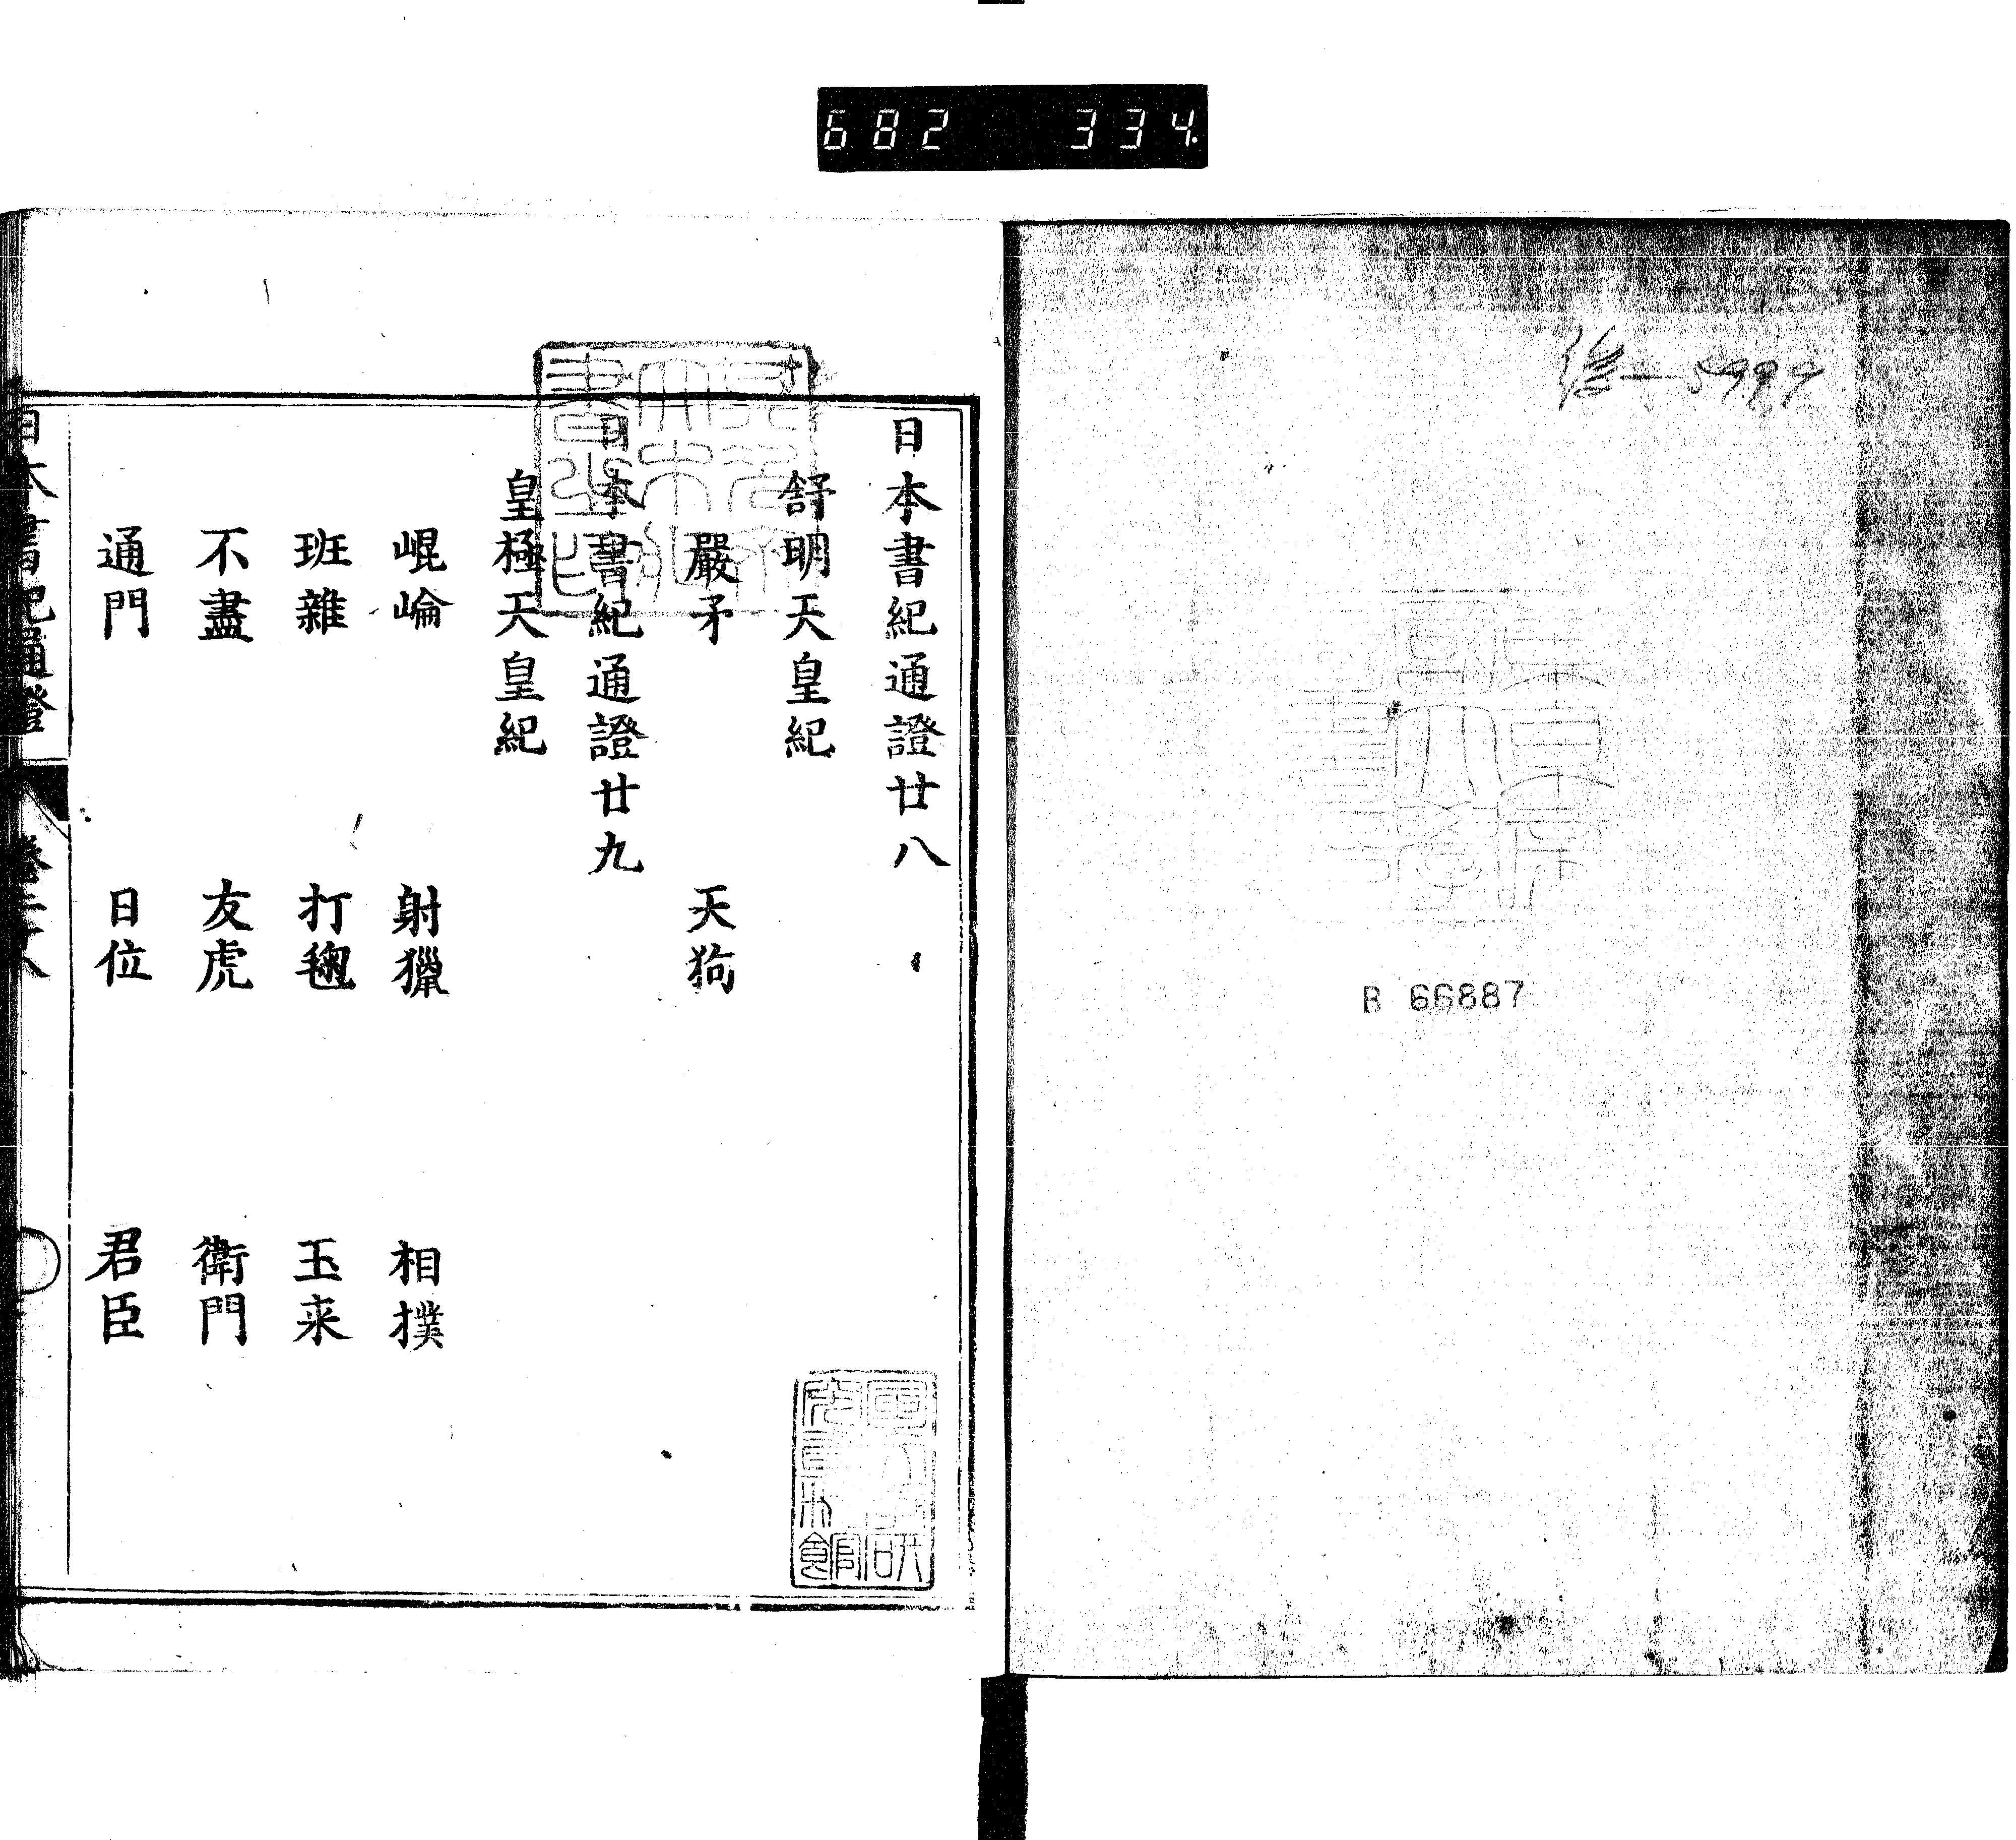 682 334
B 66887
日本書紀通證廿八
舒明天皇紀
嚴矛 天狗
日本書紀通證廿九
皇極天皇紀
崐崘 射獵 相撲
班雜 打毱 玉来
不盡 友虎 衛門
通門 日位 君臣
日本書紀通證 卷二十八